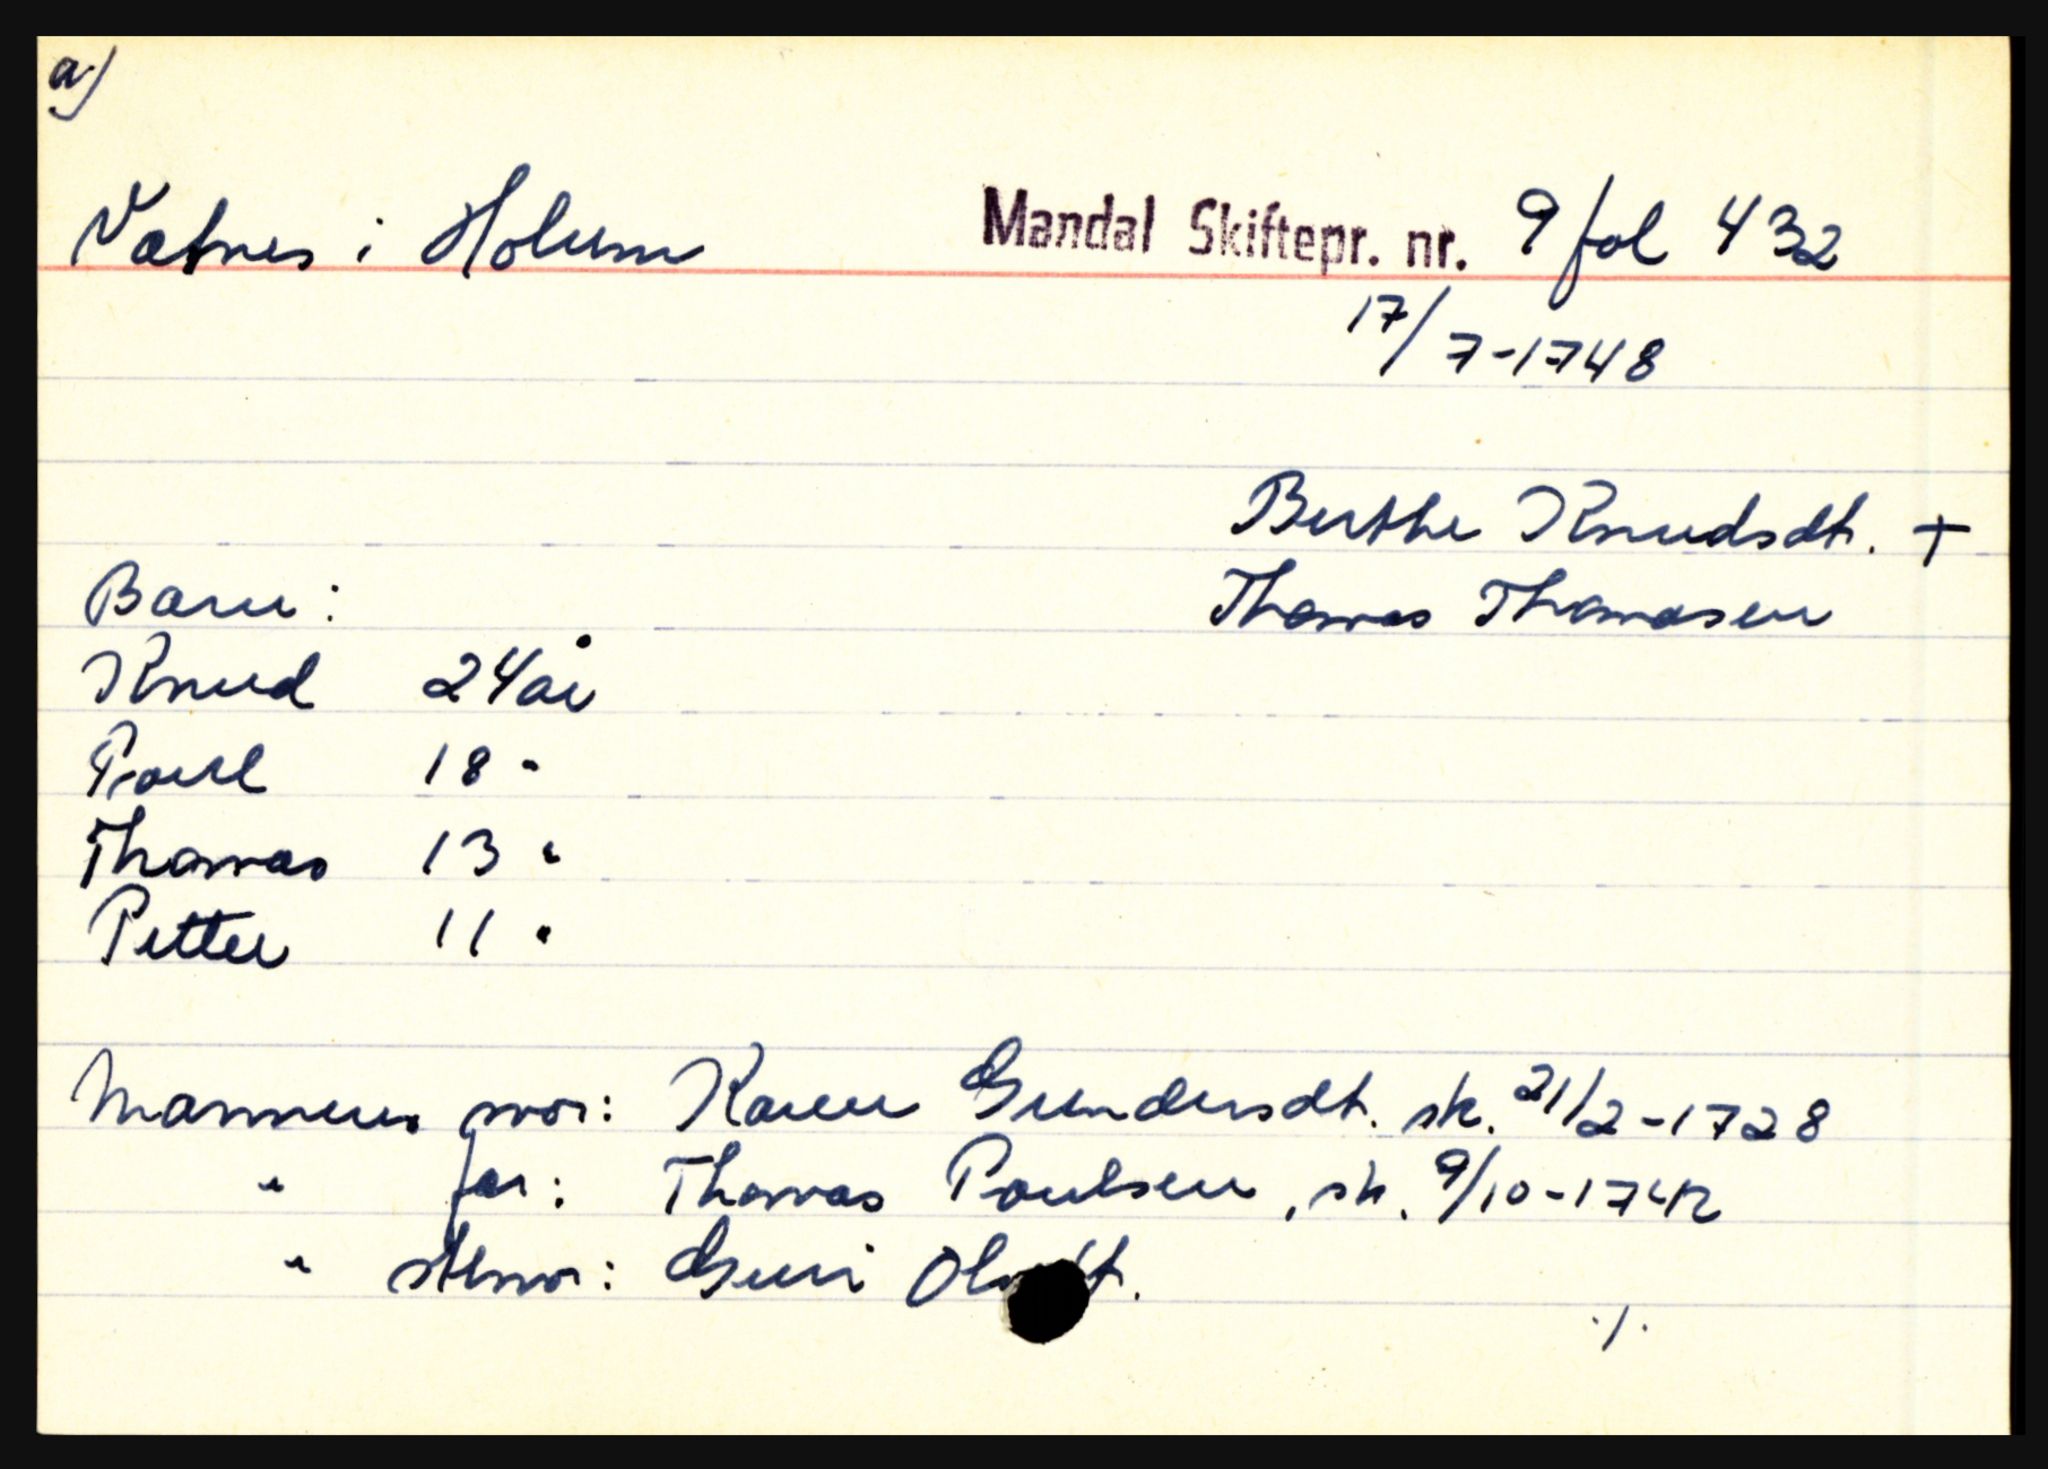 a)
Vatnes i Holum Mandal Skiftepr. nr. 9 fol 432
17/7-1748
Berthe Knudsdt. +
Barn:
Thomas Thomasen
Knud 24 år
Paul 18 "
Thomas 13 "
Petter 11 "
Mannens mor: Karen Gundersdt. sk. 21/2-1728
" far: Thomas Poulsen, sk. 9/10-1742
" stemor: Guri
./.